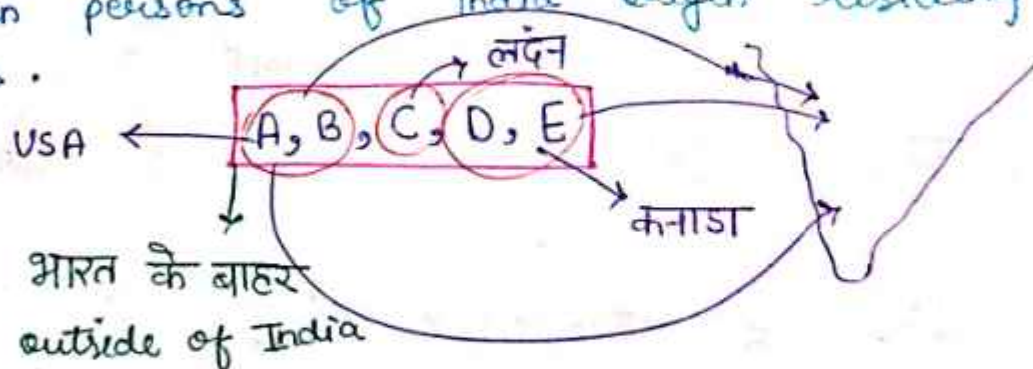 persons of
लदंन
USA
A, B, C, D, E
कनाडा
भारत के बाहर
outside of India